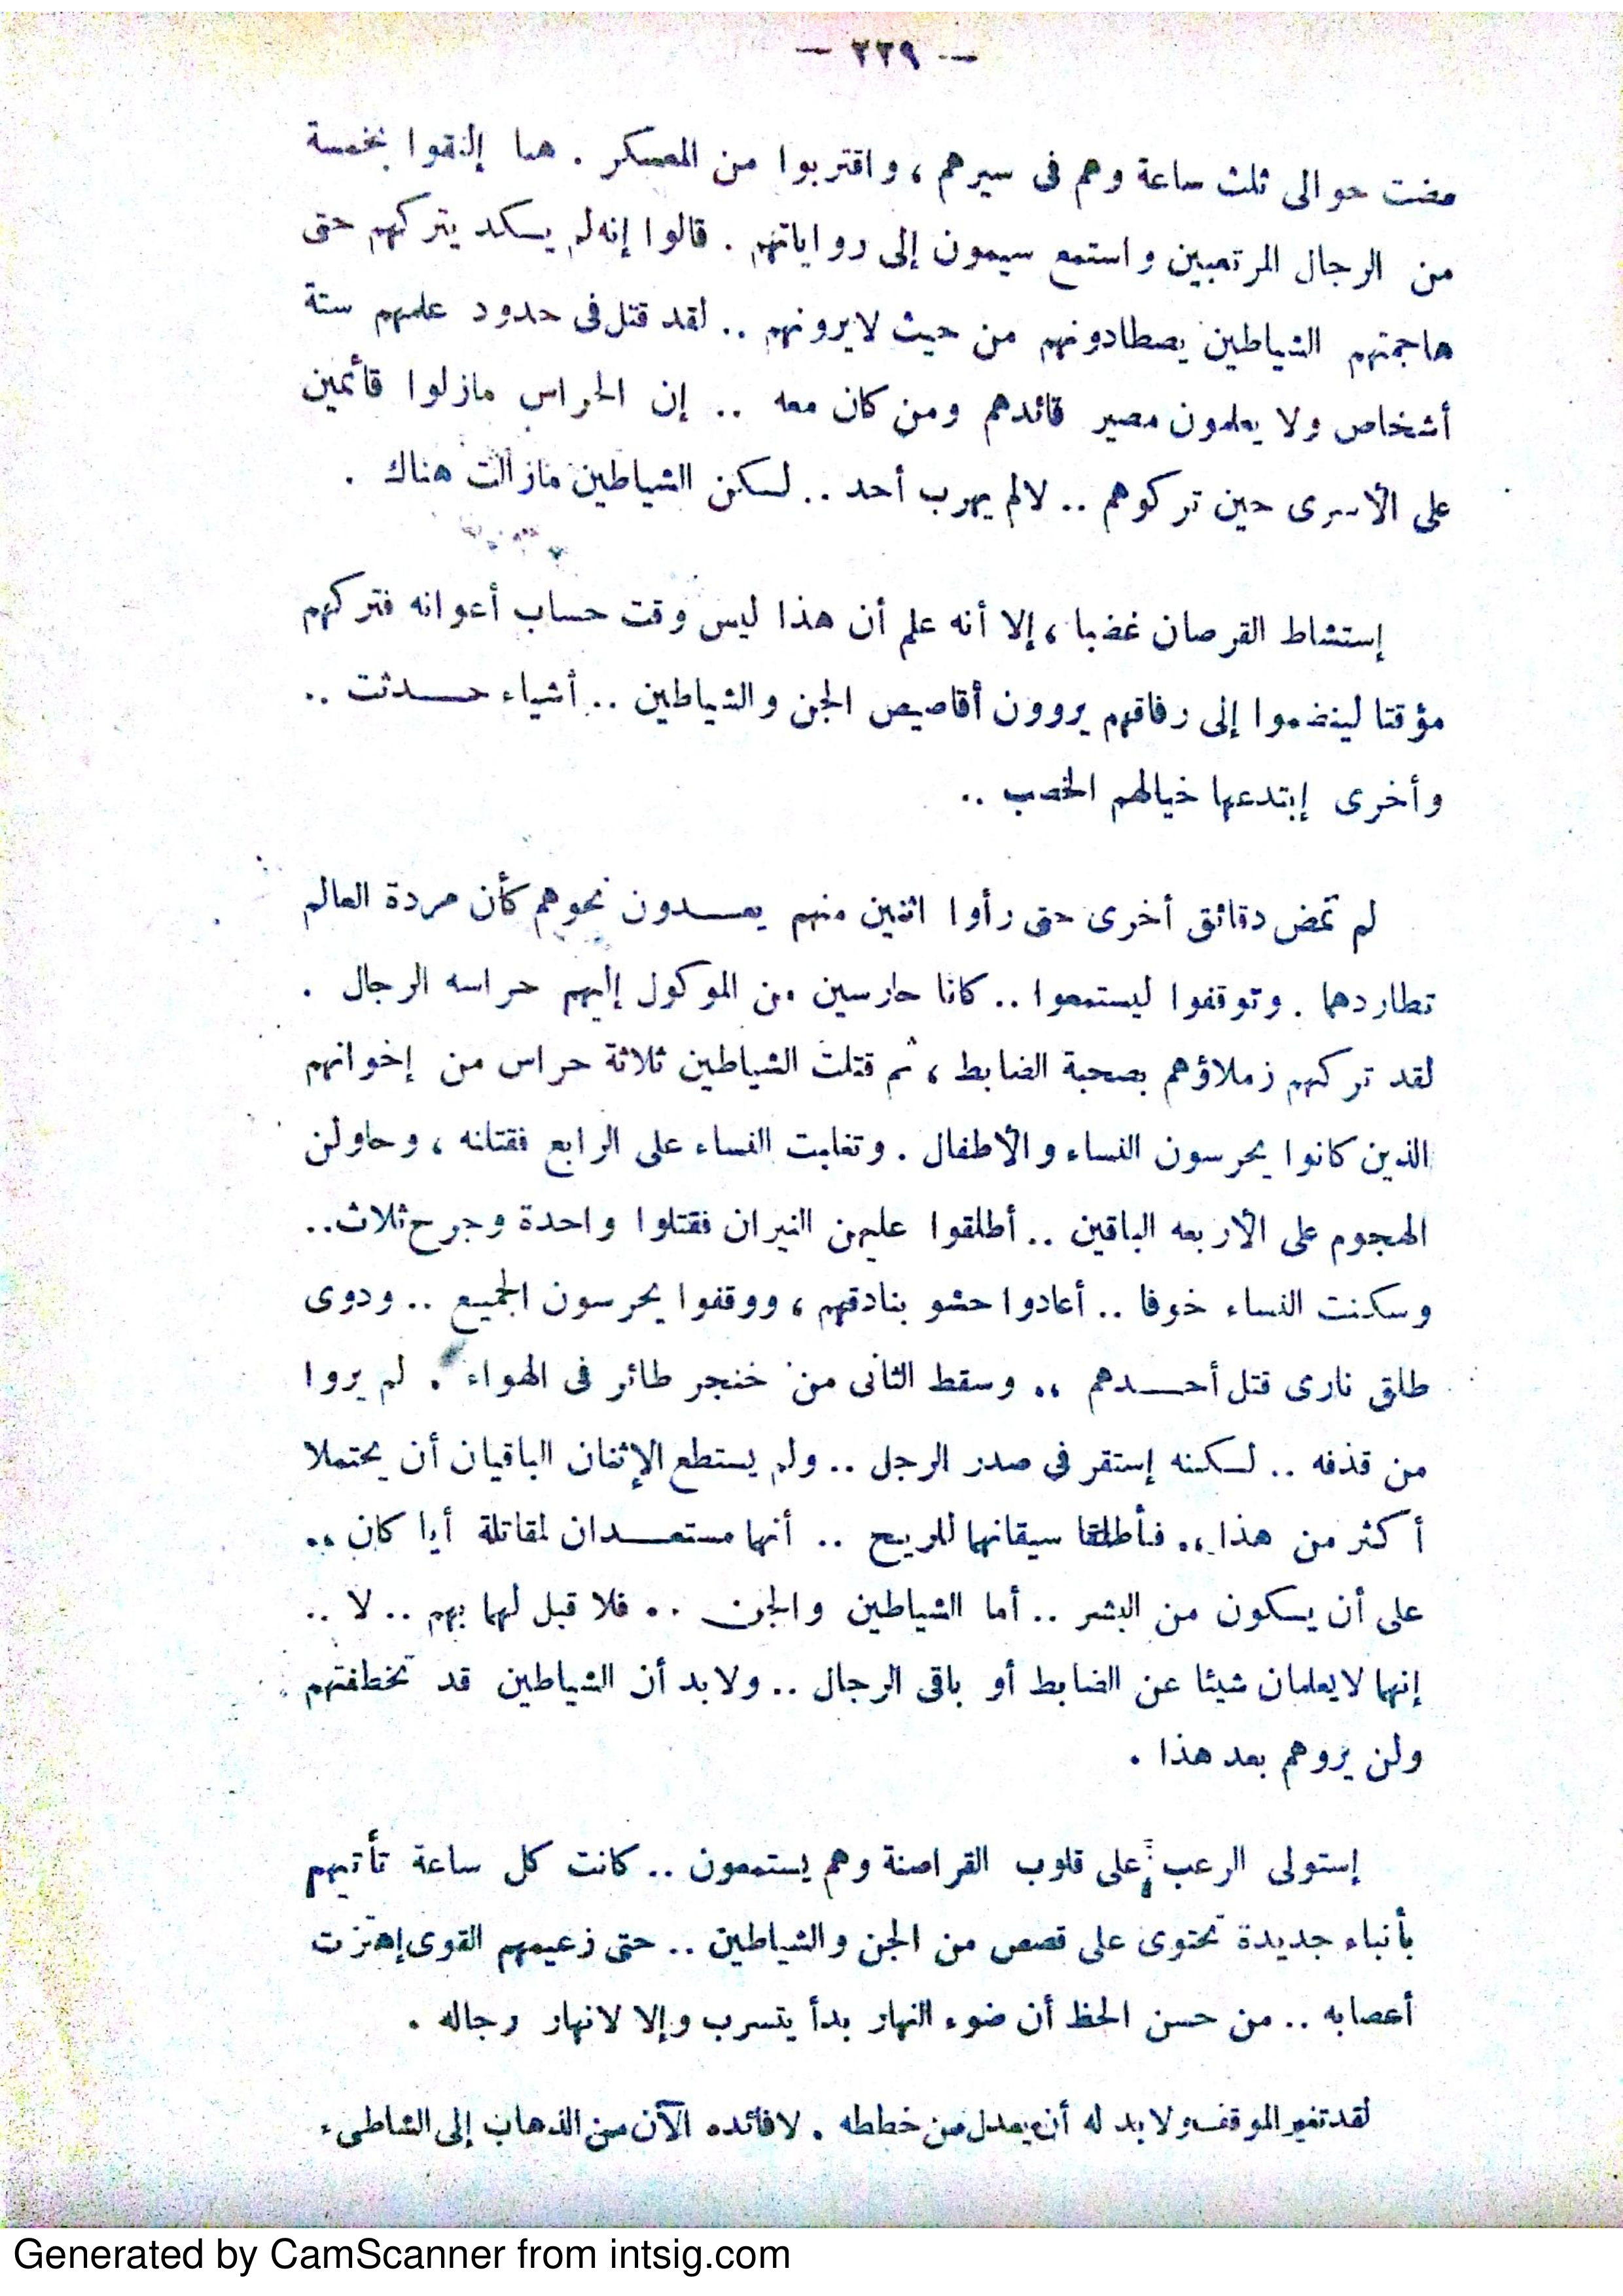 — ٢٢٩ —
مضت حوالى ثلث ساعة وهم فى سيرهم ، واقتربوا من المعسكر . هنا إلتقوا بخمسة
من الرجال المرتعبين واستمع سيمون إلى رواياتهم . قالوا إنه لم يكد يتركهم حتى
هاجمتهم الشياطين يصطادونهم من حيث لايرونهم .. لقد قتل فى حدود علمهم ستة
أشخاص ولا يعلمون مصير قائدهم ومن كان معه .. إن الحراس مازلوا قأئمين
على الأسرى حين تركوهم .. لالم يهرب أحد .. لكن الشياطين مازالت هناك .
إستشاط القرصان غضبا ، إلا أنه علم أن هذا ليس وقت حساب أعوانه فتركهم
مؤقتا لينضموا إلى رفاقهم يروون أقاصيص الجن والشياطين .. أشياء حدثت ..
وأخرى إبتدعها خيالهم الخصب ..
لم تمض دقائق أخرى حتى رأوا اثنين منهم يعدون نحوهم كأن مردة العالم
تطاردهما . وتوقفوا ليستمعوا .. كانا حارسين من الموكول إليهم حراسه الرجال .
لقد تركهم زملاؤهم بصحبة الضابط ، ثم قتلت الشياطين ثلاثة حراس من إخوانهم
الذين كانوا يحرسون النساء والأطفال . وتغلبت النساء على الرابع فقتلنه ، وحاولن
الهجوم على الأربعه الباقين .. أطلقوا عليهن النيران فقتلوا واحدة وجرح ثلاث ..
وسكنت النساء خوفا .. أعادوا حشو بنادقهم ، ووقفوا يحرسون الجميع .. ودوى
طلق نارى قتل أحدهم .. وسقط الثانى من خنجر طائر فى الهواء . لم يروا
من قذفه .. لكنه إستقر فى صدر الرجل .. ولم يستطع الإثنان الباقيان أن يحتملا
أكثر من هذا .. فأطلقا سيقانهما للريح .. أنهما مستعدان لمقاتلة أيا كان ..
على أن يكون من البشر .. أما الشياطين والجن .. فلا قبل لهما بهم .. لا ..
إنهما لايعلمان شيئا عن الضابط أو باقى الرجال .. ولابد أن الشياطين قد تخطفتهم
ولن يروهم بعد هذا .
إستولى الرعب على قلوب القراصنة وهم يستمعون .. كانت كل ساعة تأتيهم
بأنباء جديدة تحتوى على قصص من الجن والشياطين .. حتى زعيمهم القوى إهتزت
أعصابه .. من حسن الحظ أن ضوء النهار بدأ يتسرب وإلا لانهار رجاله .
لقد تغير الموقف ولابد له أن يعدل من خططه . لافائده الآن من الذهاب إلى الشاطىء
Generated by CamScanner from intsig.com